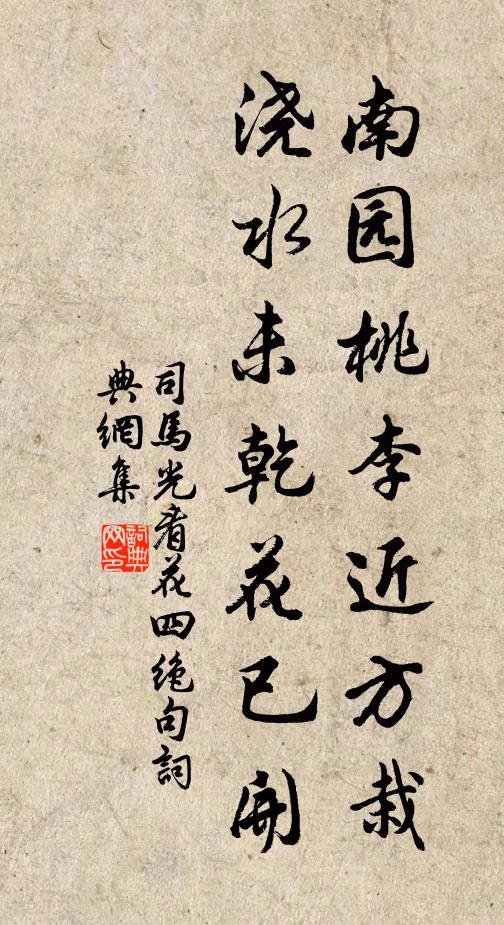 南园桃李近方栽
浇水未乾花已开
司馬光看花四绝句詞
典網集
詞典
网印